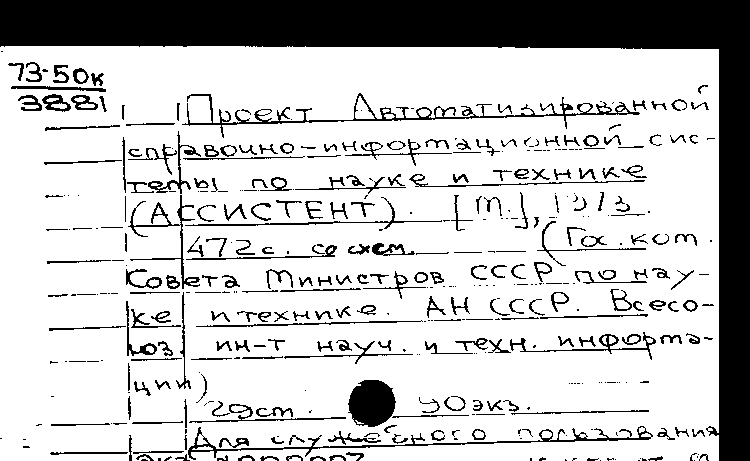 73-50к
3881
Проект Автоматизированной
справочно-информационной сис-
темы по науке и технике
(АССИСТЕНТ). [М.], 1973.
472 с. со схем. (Гос. ком.
Совета Министров СССР по нау-
ке и технике. АН СССР. Всесо-
юз. ин-т науч. и техн. информа-
ции)
29 см. 90 экз.
Для служебного пользования
Экз.